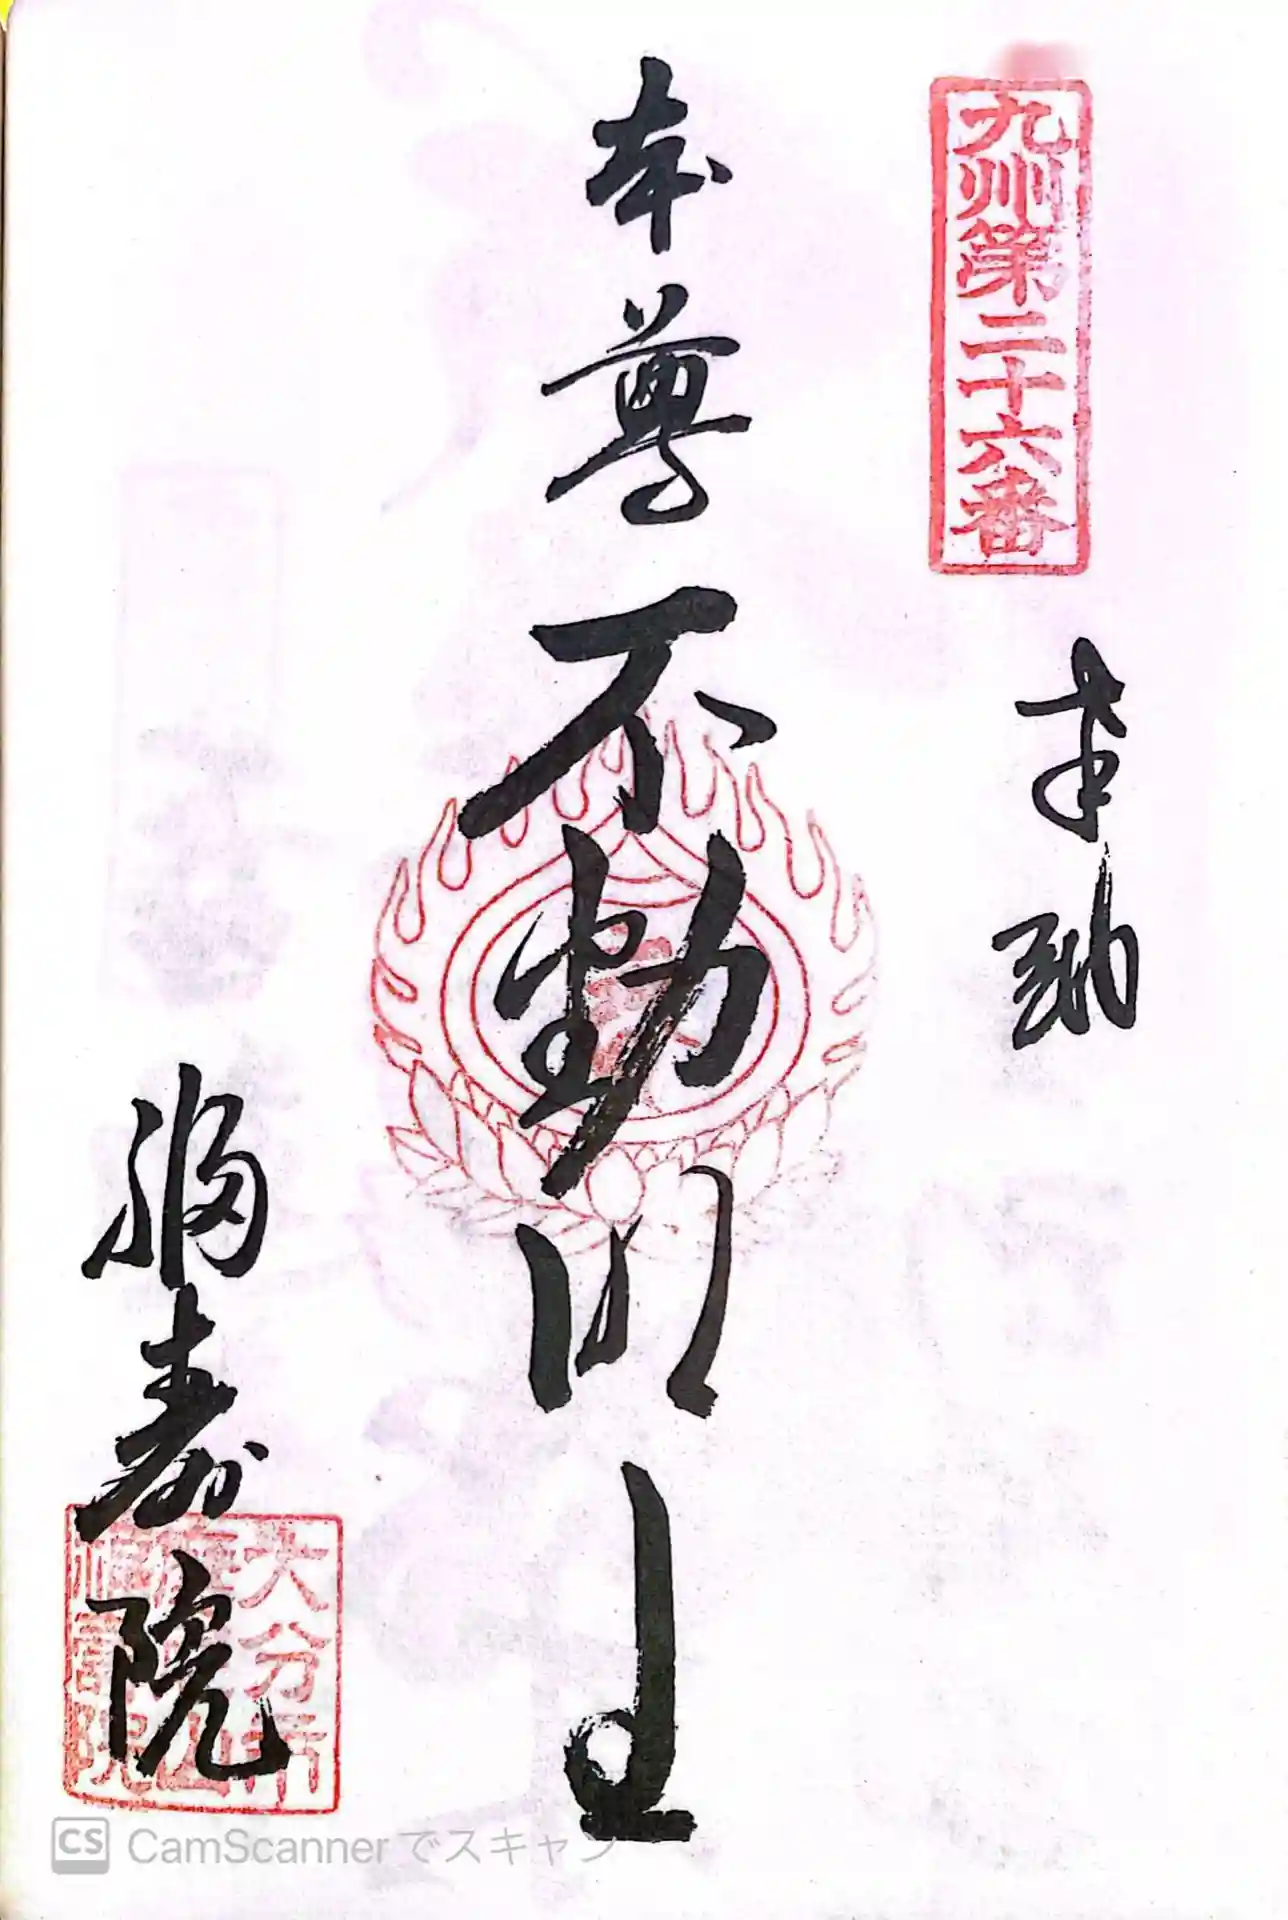 九州第二十六番
奉納
本尊不動明王
福寿院
大分市
CS CamScannerでスキャン